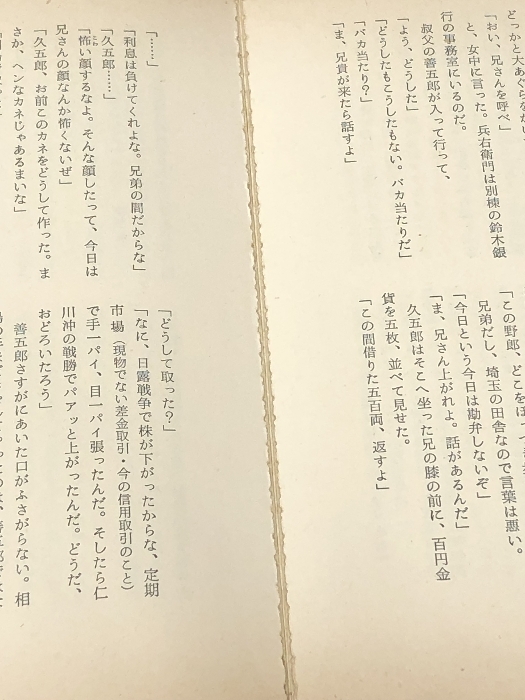 どっかと大あぐらをか
「おい、兄さんを呼べ」
と、女中に言った。兵右衛門は別棟の鈴木銀
行の事務室にいるのだ。
叔父の善五郎が入って行って、
「よう、どうした」
「どうしたもこうしたもない。バカ当たりだ」
「バカ当たり？」
「ま、兄貴が来たら話すよ」
「この野郎、どこをほ
兄弟だし、埼玉の田舎なので言葉は悪い。
「今日という今日は勘弁しないぞ」
「ま、兄さん上がれよ。話があるんだ」
久五郎はそこへ坐った兄の膝の前に、百円金
貨を五枚、並べて見せた。
「この間借りた五百両、返すよ」
「……」
「利息は負けてくれよな。兄弟の間だからな」
「久五郎……」
「怖い顔するなよ。そんな顔したって、今日は
兄さんの顔なんか怖くないぜ」
「久五郎、お前このカネをどうして作った。ま
さか、ヘンなカネじゃあるまいな」
「どうして取った？」
「なに、日露戦争で株が下がったからな、定期
市場（現物でない差金取引・今の信用取引のこと）
で手一パイ、目一パイ張ったんだ。そしたら仁
川沖の戦勝でパアッと上がったんだ。どうだ、
おどろいたろう」
善五郎さすがにあいた口がふさがらない。相